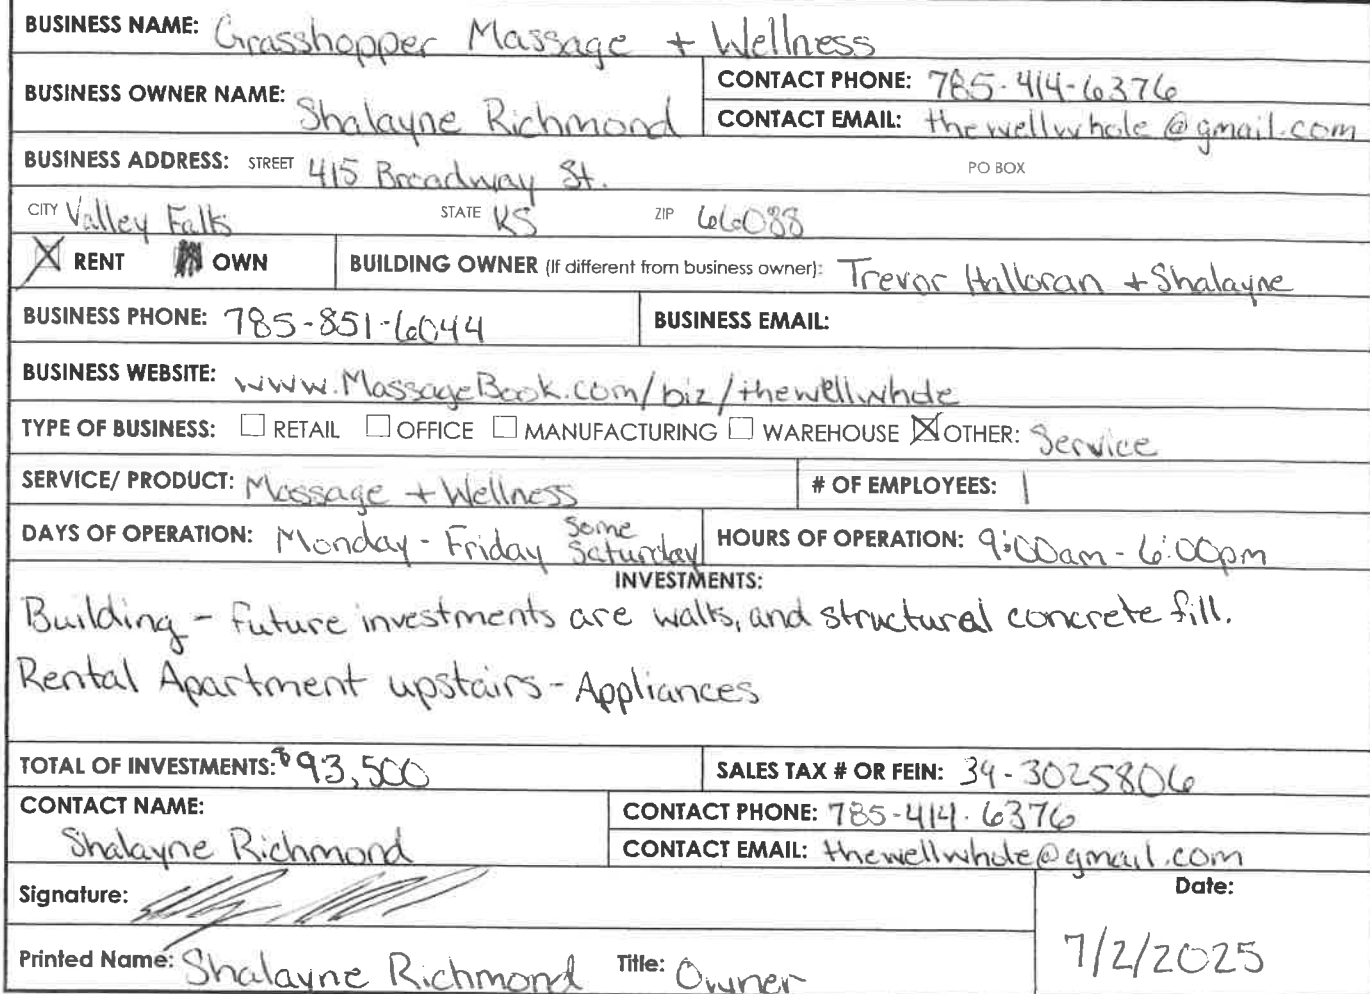 BUSINESS NAME: Grasshopper Massage + Wellness
BUSINESS OWNER NAME: Shalayne Richmond
CONTACT PHONE: 785-414-6376
CONTACT EMAIL: thewellwhole@gmail.com
BUSINESS ADDRESS: STREET 415 Broadway St. PO BOX
CITY Valley Falls STATE KS ZIP 66088
RENT OWN BUILDING OWNER (If different from business owner): Trevor Halloran + Shalayne
BUSINESS PHONE: 785-851-6044 BUSINESS EMAIL:
BUSINESS WEBSITE: www.MassageBook.com/biz/thewellwhole
TYPE OF BUSINESS: RETAIL OFFICE MANUFACTURING WAREHOUSE OTHER: Service
SERVICE/ PRODUCT: Massage + Wellness # OF EMPLOYEES: 1
DAYS OF OPERATION: Monday - Friday Some Saturday HOURS OF OPERATION: 9:00am - 6:00pm
INVESTMENTS:
Building - future investments are walls, and structural concrete fill.
Rental Apartment upstairs - Appliances
TOTAL OF INVESTMENTS: $93,500 SALES TAX # OR FEIN: 34-3025806
CONTACT NAME: Shalayne Richmond
CONTACT PHONE: 785-414-6376
CONTACT EMAIL: thewellwhole@gmail.com
Signature:
Date: 7/2/2025
Printed Name: Shalayne Richmond Title: Owner